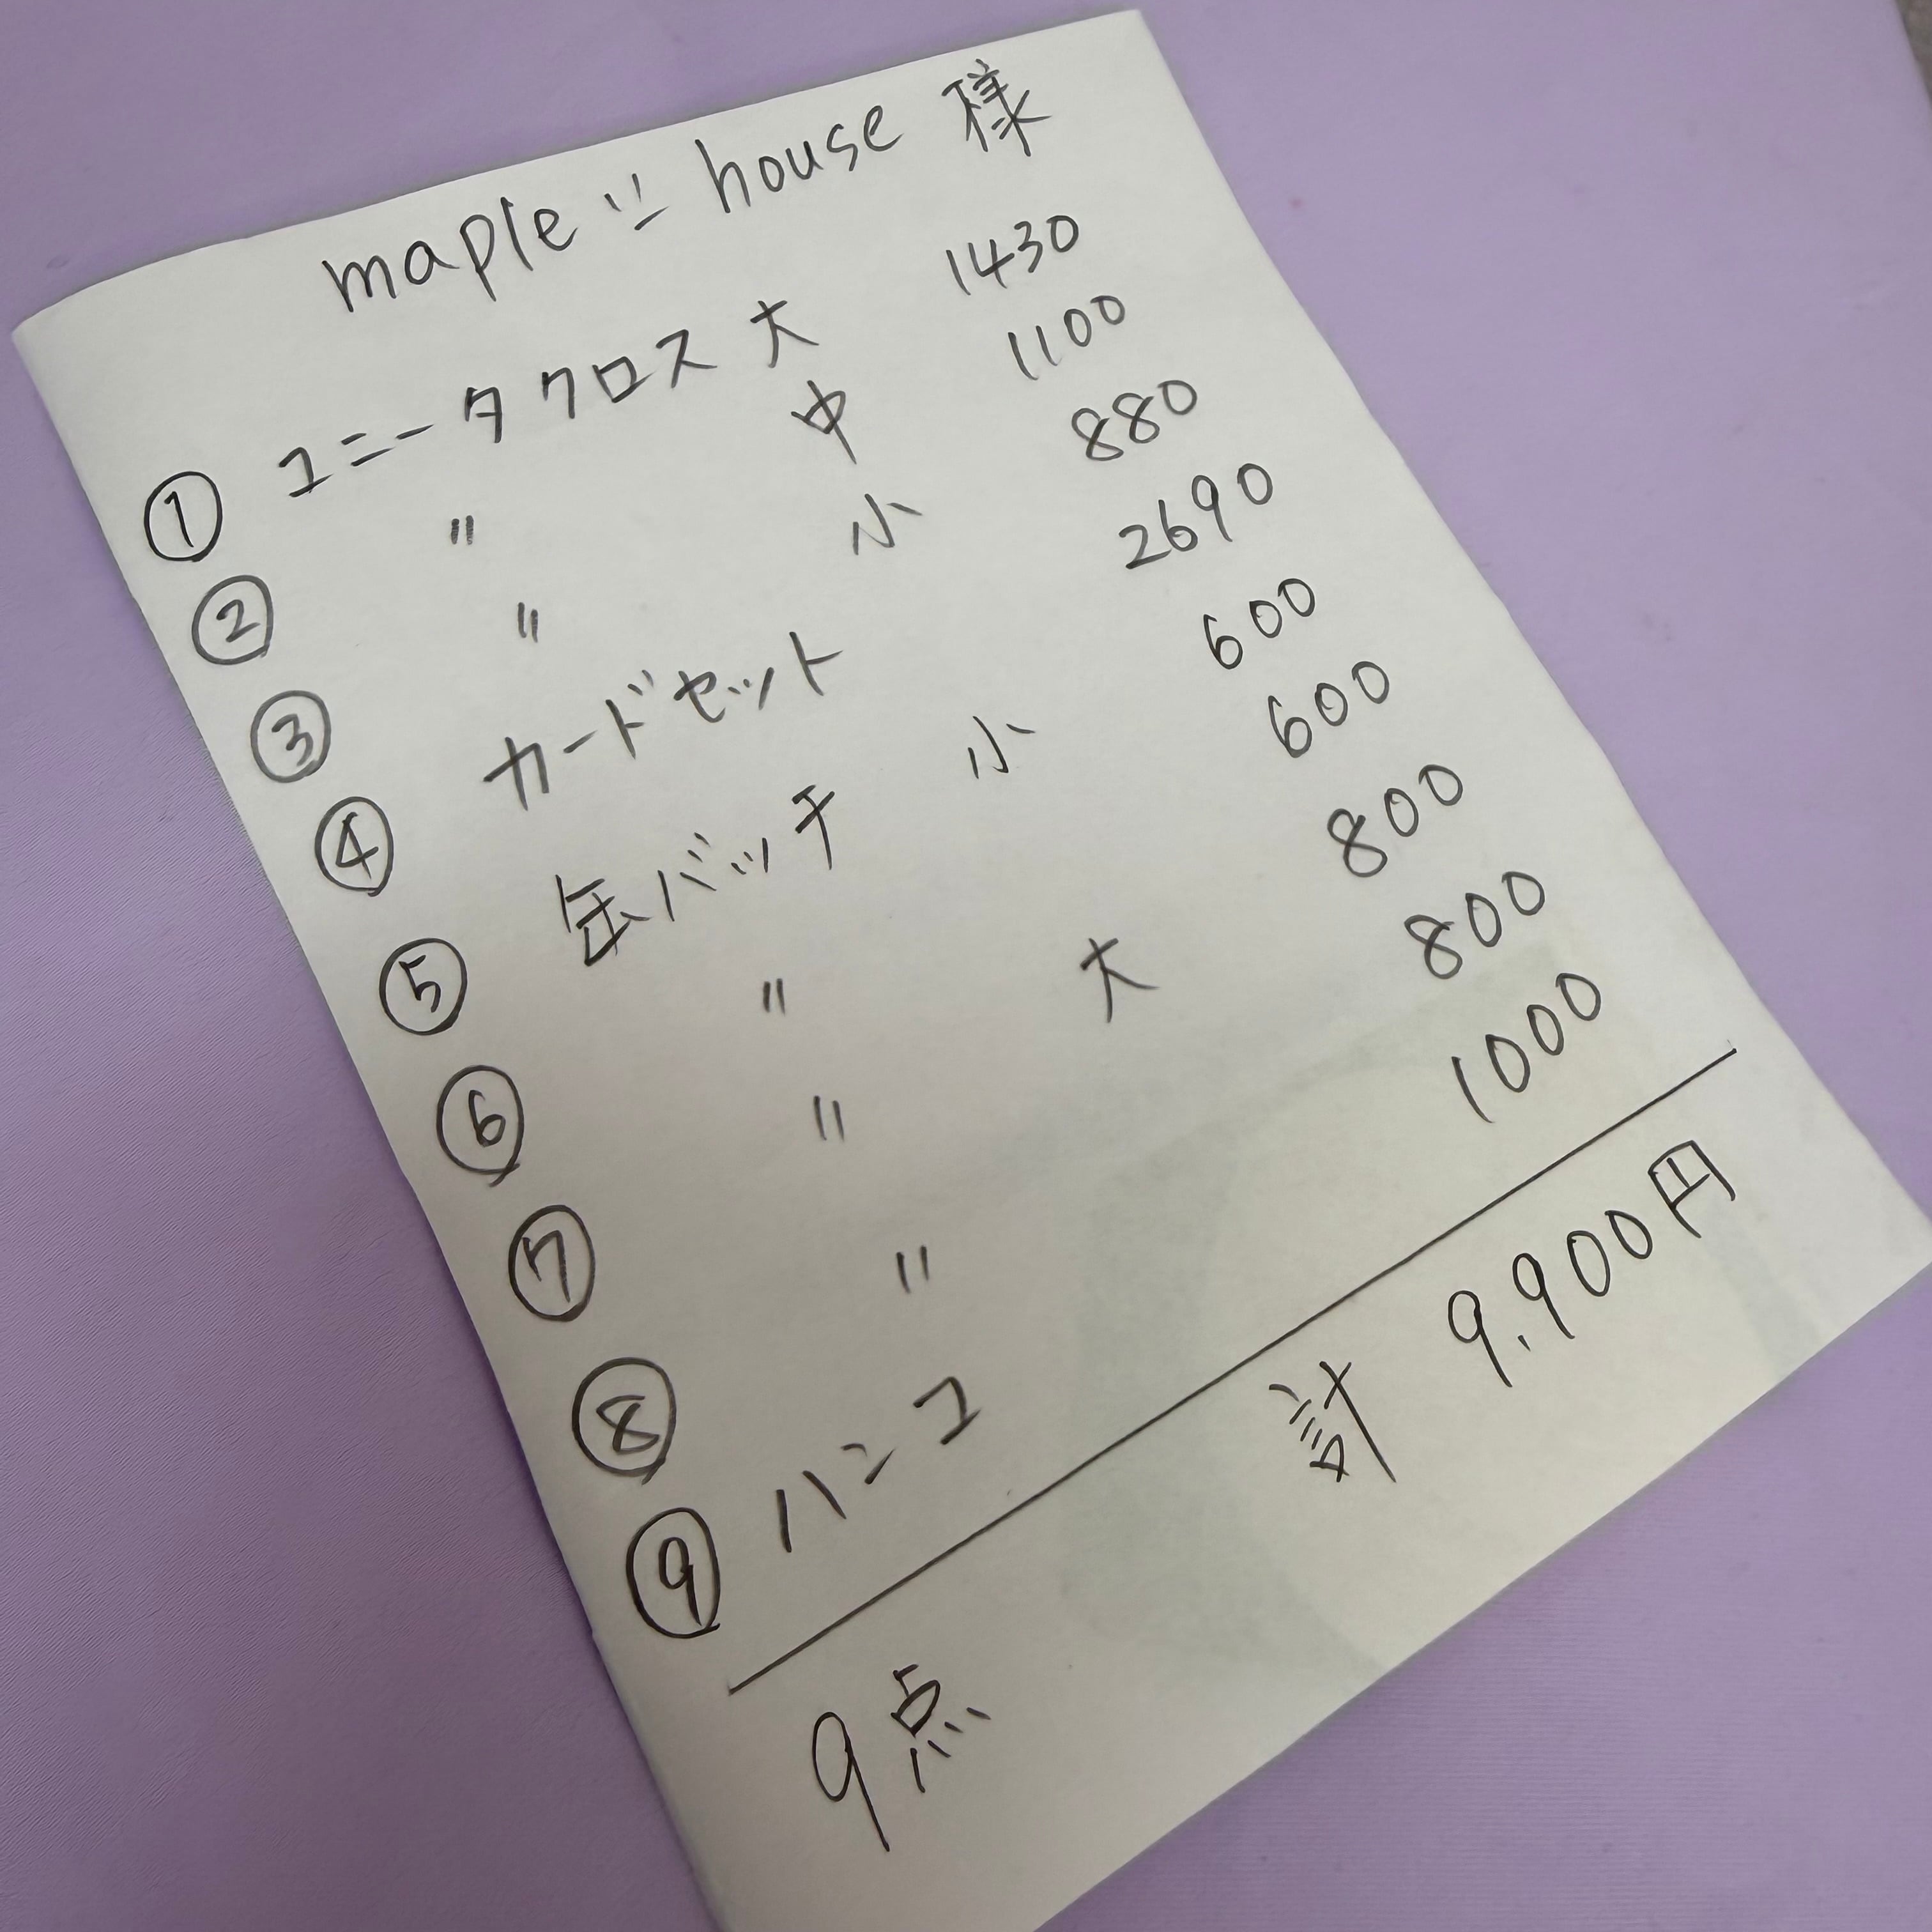 maple ニ house 様
① ユニータクロス 大 1430
② 〃 中 1100
③ 〃 小 880
④ カードセット 2690
⑤ 缶バッチ 小 600
⑥ 〃 600
⑦ 〃 大 800
⑧ 〃 800
⑨ ハンコ 1000
9点 計 9.900円